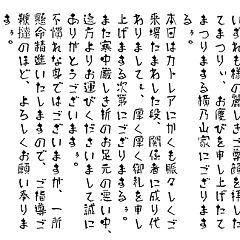 いずれも様のご尊顔を拝したて
てまつりぃ、お慶びを申し上げたて
まつりまする横乃山家にござりま
するぅ。
本日はカトレアにかくも賑々しくご
来場たまわした段、関係者に成り代
ありまして、厚く厚く御礼を申し
上げまする次第にござりまする。
また寒中厳しき折のお足元の悪い中、
遠方よりお運びくださいまして誠に
ありがとうございます。
不慣れな母ではございますが、一所
懸命精進いたしますので、ご指導ご
鞭撻のほど、よろしくお願い奉りま
すぅ。